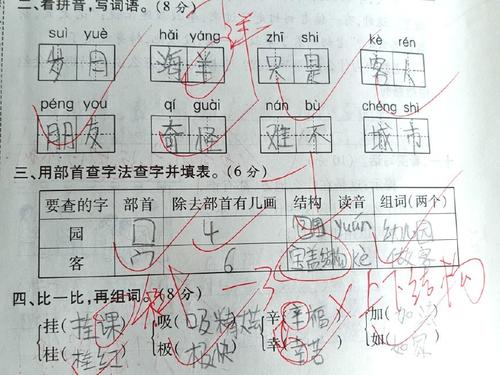 二、看拼音，写词语。(8分)
suì yuè hǎi yáng zhī shi kè rén
岁月 海羊 只是 客人
洋
péng you qí guài nán bù chéng shì
朋友 奇怪 难不 城市
三、用部首查字法查字并填表。(6分)
要查的字 部首 除去部首有几画 结构 读音 组词(两个)
园 囗 4 yuán 幼儿园
客 宀 6 宝盖结构 kè
上下结构
四、比一比,再组词。(8分)
挂(挂课) 吸(吸) 辛(辛福) 加(加)
桂(挂红) 极(极快) 幸(幸苦) 如(如果)